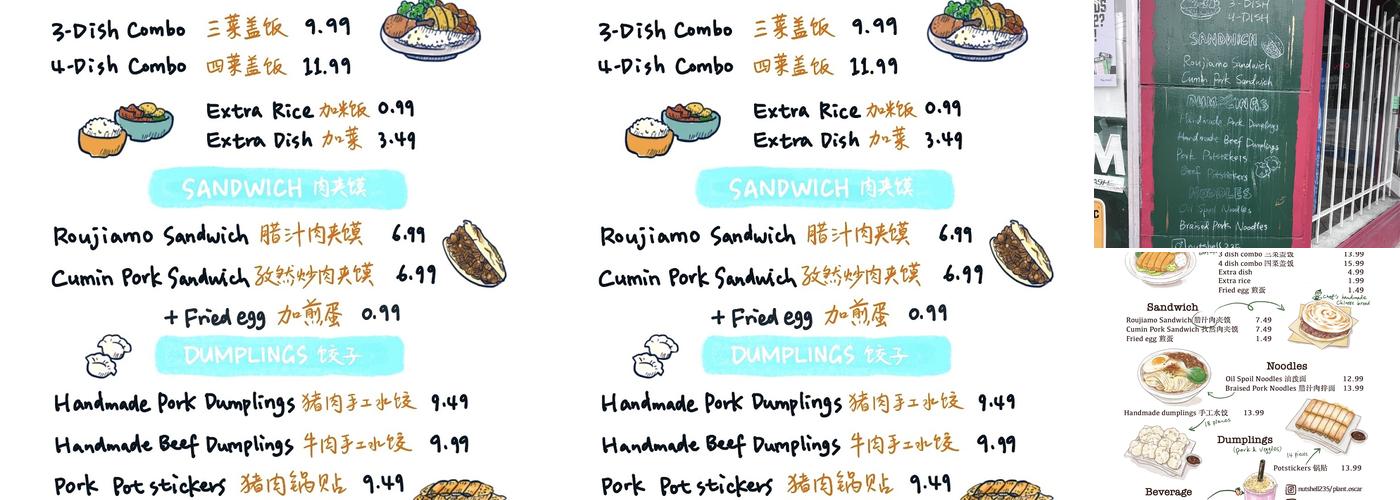 3-Dish Combo 三菜盖饭 9.99
4-Dish Combo 四菜盖饭 11.99
Extra Rice 加米饭 0.99
Extra Dish 加菜 3.49
SANDWICH 肉夹馍
Roujiamo Sandwich 腊汁肉夹馍 6.99
Cumin Pork Sandwich 孜然炒肉夹馍 6.99
+ Fried egg 加煎蛋 0.99
DUMPLINGS 饺子
Handmade Pork Dumplings 猪肉手工水饺 9.49
Handmade Beef Dumplings 牛肉手工水饺 9.99
Pork Potstickers 猪肉锅贴 9.49
3-Dish Combo 三菜盖饭 9.99
4-Dish Combo 四菜盖饭 11.99
Extra Rice 加米饭 0.99
Extra Dish 加菜 3.49
SANDWICH 肉夹馍
Roujiamo Sandwich 腊汁肉夹馍 6.99
Cumin Pork Sandwich 孜然炒肉夹馍 6.99
+ Fried egg 加煎蛋 0.99
DUMPLINGS 饺子
Handmade Pork Dumplings 猪肉手工水饺 9.49
Handmade Beef Dumplings 牛肉手工水饺 9.99
Pork Potstickers 猪肉锅贴 9.49
3-DISH
4-DISH
SANDWICH
Roujiamo Sandwich
Cumin Pork Sandwich
DUMPLINGS
Handmade Pork Dumplings
Handmade Beef Dumplings
Pork Potstickers
Beef Potstickers
NOODLES
Oil Spoil Noodles
Braised Pork Noodles
nutshell235
3 dish combo 三菜盖饭 13.99
4 dish combo 四菜盖饭 15.99
Extra dish 4.99
Extra rice 1.99
Fried egg 煎蛋 1.49
Sandwich
chef's handmade
Chinese bread
Roujiamo Sandwich 腊汁肉夹馍 7.49
Cumin Pork Sandwich 孜然肉夹馍 7.49
Fried egg 煎蛋 1.49
Noodles
Oil Spoil Noodles 油泼面 12.99
Braised Pork Noodles 腊汁肉拌面 13.99
Handmade dumplings 手工水饺 13.99
18 pieces
Dumplings
(pork & veggies)
14 pieces
Potstickers 锅贴 13.99
Beverage
nutshell235/plant.oscar